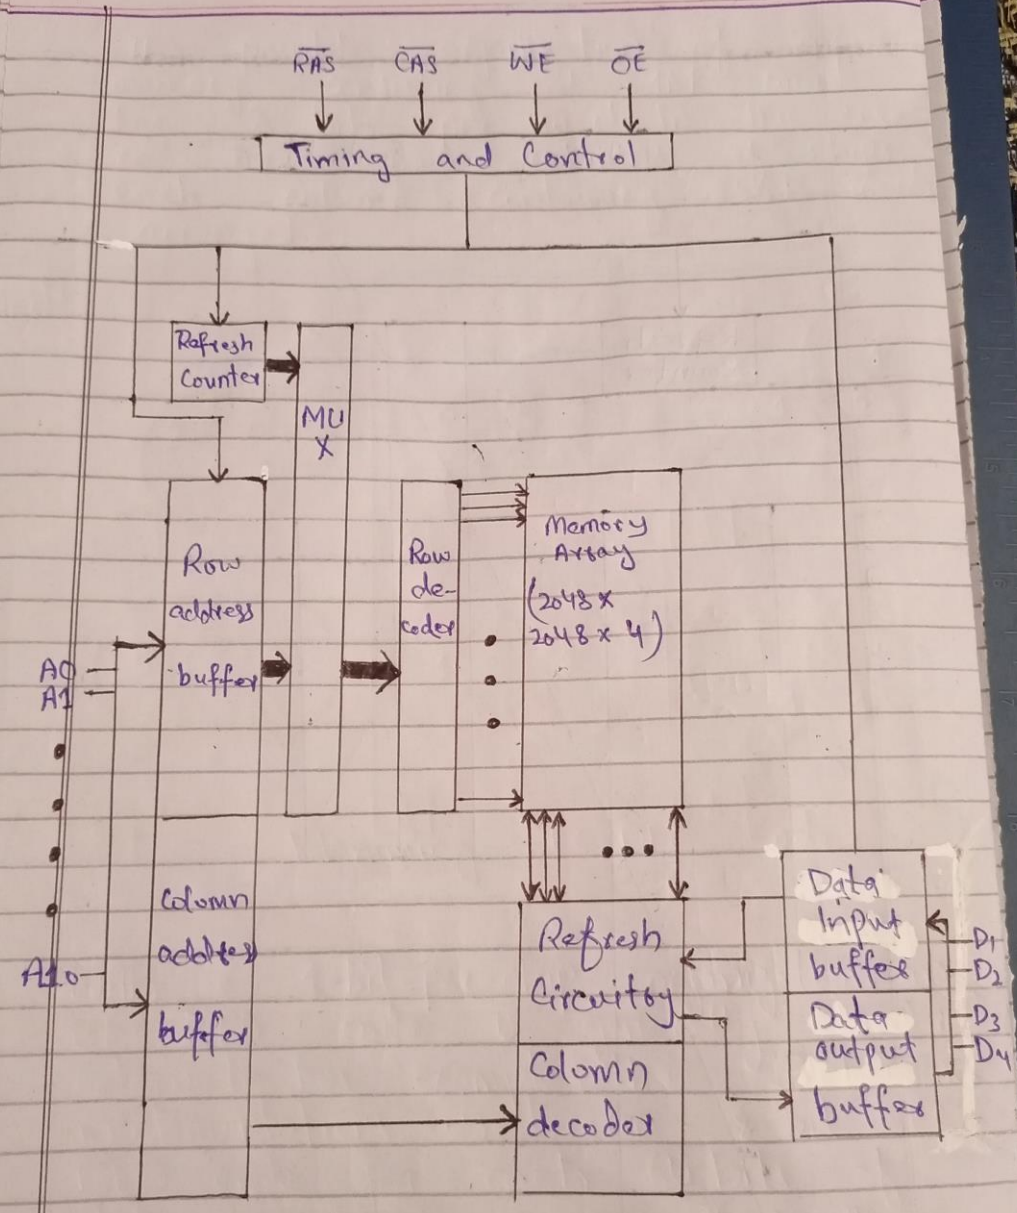 R̅A̅S̅ C̅A̅S̅ W̅E̅ O̅E̅
Timing and Control
Refresh
Counter
MU
X
Row
address
buffer
Row
de-
coder
Memory
Array
(2048 x
2048 x 4)
A0
A1
A10
Column
address
buffer
Refresh
Circuitry
Column
decoder
Data
Input
buffer
Data
output
buffer
D1
D2
D3
D4